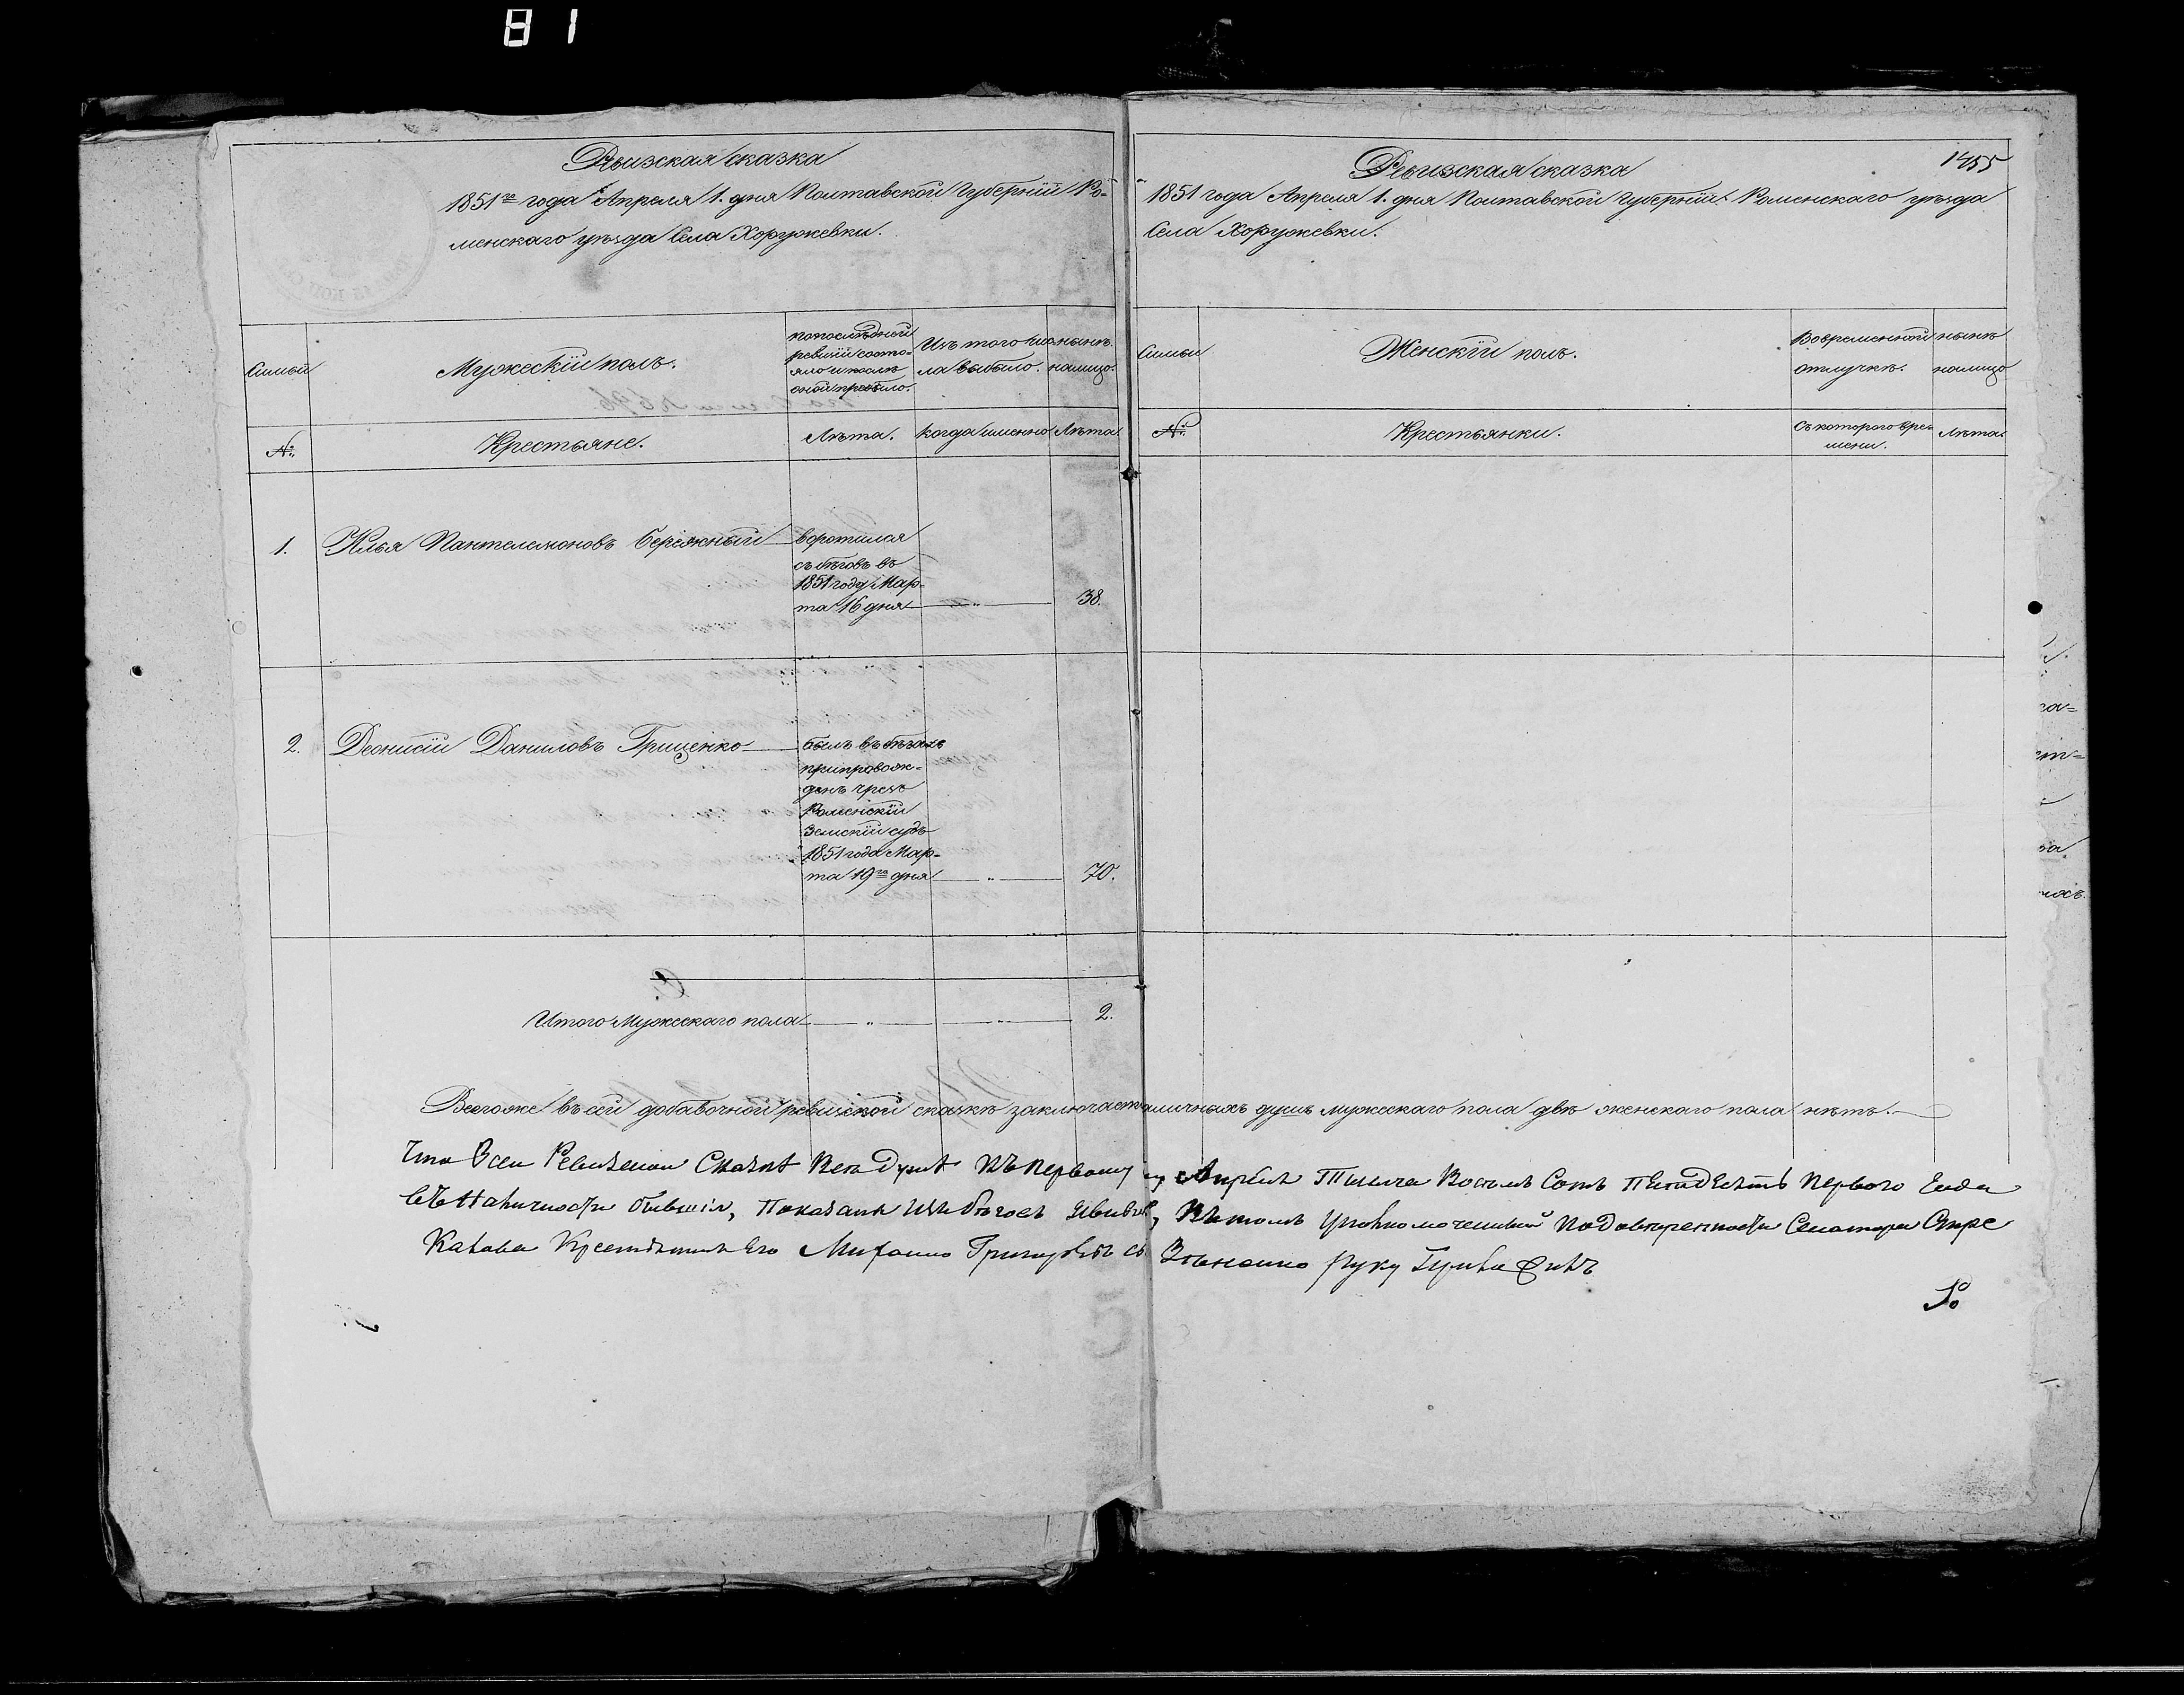 81
Ревизская сказка
1851го года Апреля 1. дня Полтавской Губерніи Ро-
менскаго уѣзда Села Хоружевки.
Семьи
Мужескій полъ.
По последней
ревизіи состо-
яло и послѣ
оной прибыло.
Изъ того чис-
ла выбыло.
нынѣ
налицо.
№.
Крестьяне.
Лѣта.
когда именно
Лѣта
1.
Илья Пантелемоновъ Бережный
воротился
съ бѣговъ въ
1851 году Мар-
та 16 дня
38.
2.
Деонисій Даниловъ Гриценко
былъ въ бѣгахъ
припровож-
денъ чрезъ
Роменскій
Земскій судъ
1851 года Мар-
та 19го дня
70.
Итого Мужескаго пола
2.
Ревизская сказка
1455
1851 года Апреля 1. дня Полтавской Губерніи Роменскаго уѣзда
Села Хоружевки.
Семьи
Женскій полъ.
Во временной
отлучкѣ.
нынѣ
налицо
№.
Крестьянки.
Съ котораго вре-
мени.
Лѣта
Всегоже въ сей добавочной ревизской сказкѣ заключается наличныхъ душъ мужескаго пола двѣ женскаго пола нѣтъ.
Что Всеи Ревизскои Сказкѣ Всѣ Душѣ Къ первому Апреля Тысеча Восемь Сотъ Петдесятъ Первого Года
въ Наличности бывшія, Показани изъ бѣговъ Въ томъ Уполномоченный по доверенности Сенатора Стре
Калова Крестьянинъ его Михаило Григорьевъ сынъ руку